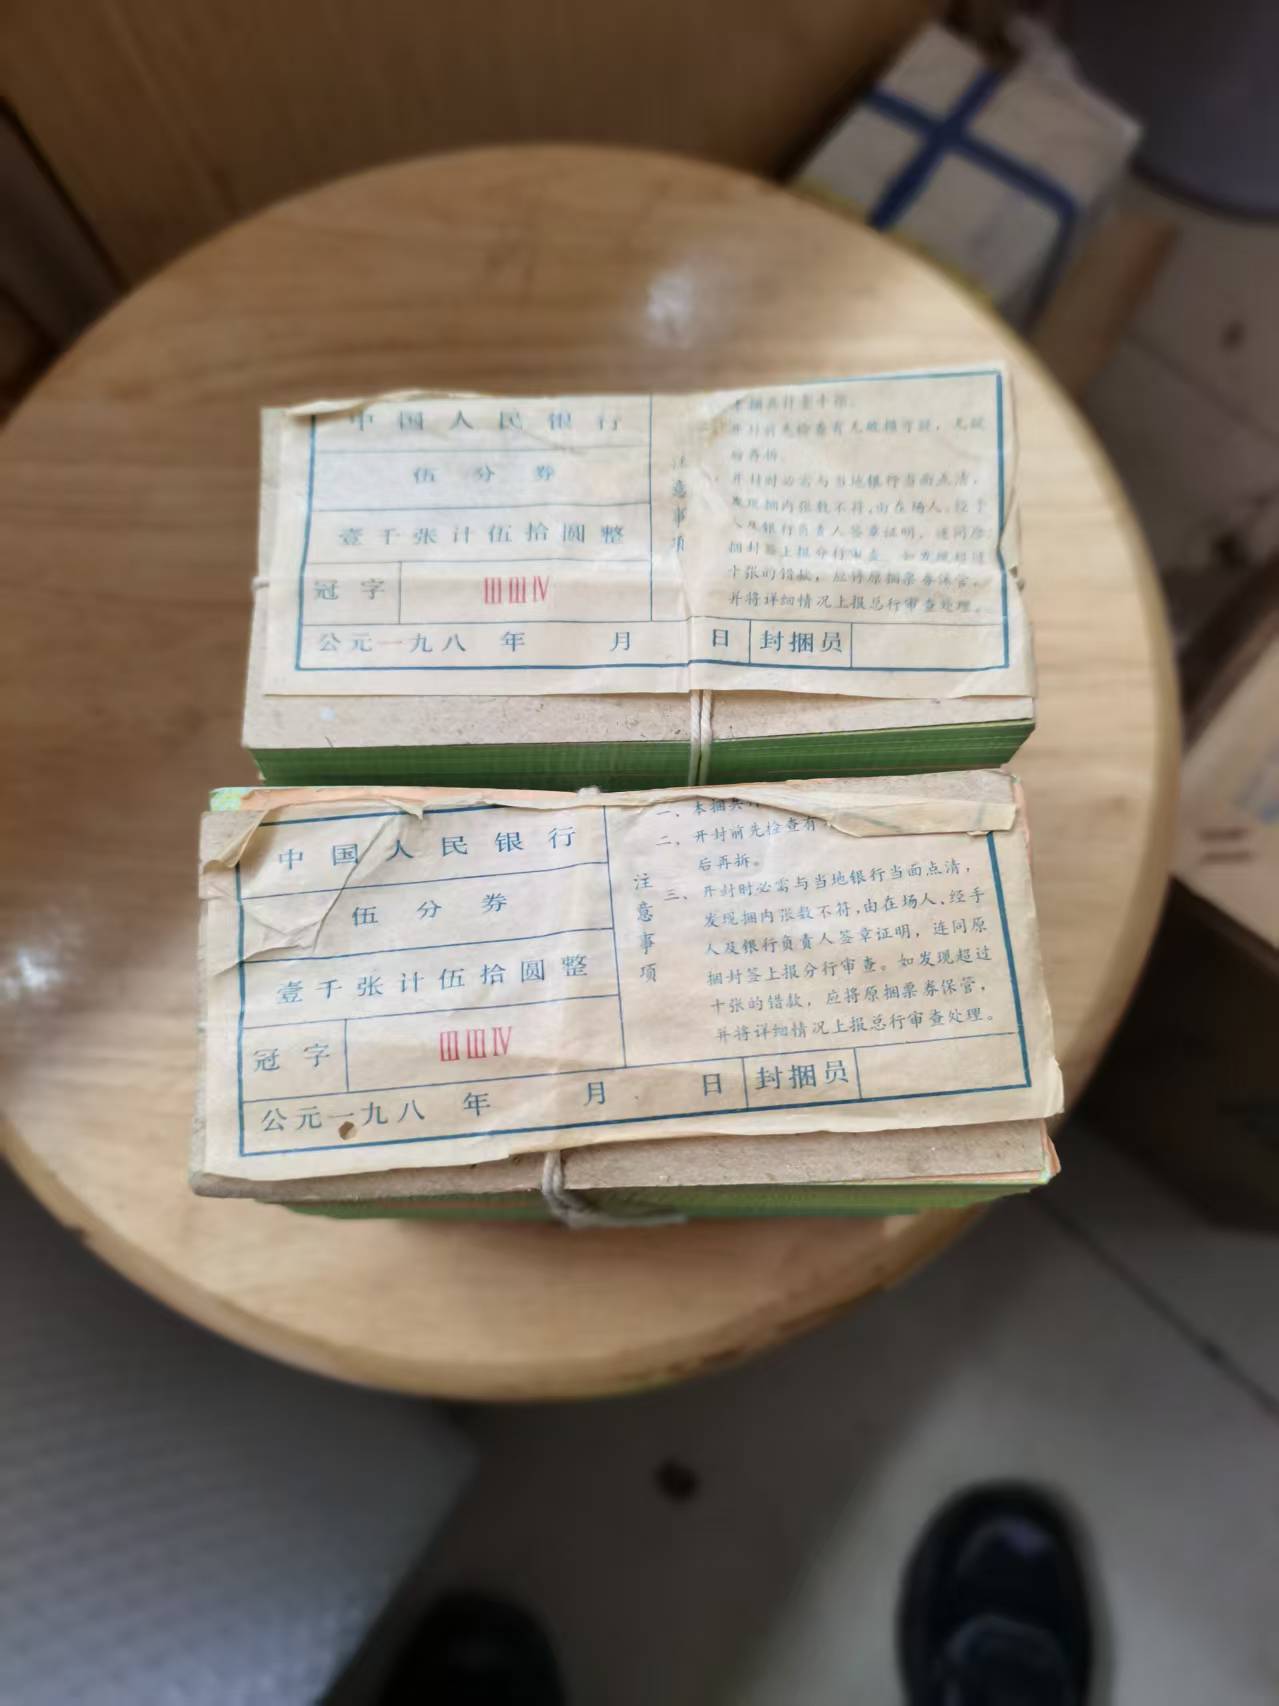 中国人民银行
伍分券
壹千张计伍拾圆整
冠字 ⅢⅢⅣ
公元一九八 年 月 日 封捆员
注意事项
本捆共计壹十把。
开封前先检查有无破損可疑，无疑
后再拆。
开封时必需与当地银行当面点清，
发现捆内张数不符，由在场人、经手
人及银行负责人签章证明，连同原
捆封签上报分行审查。如发现超过
十张的错款，应将原捆票券保管，
并将详细情况上报总行审查处理。
中国人民银行
伍分券
壹千张计伍拾圆整
冠字 ⅢⅢⅣ
公元一九八 年 月 日 封捆员
注意事项
一、本捆共
二、开封前先检查有
后再拆。
三、开封时必需与当地银行当面点清，
发现捆内张数不符，由在场人、经手
人及银行负责人签章证明，连同原
捆封签上报分行审查。如发现超过
十张的错款，应将原捆票券保管，
并将详细情况上报总行审查处理。